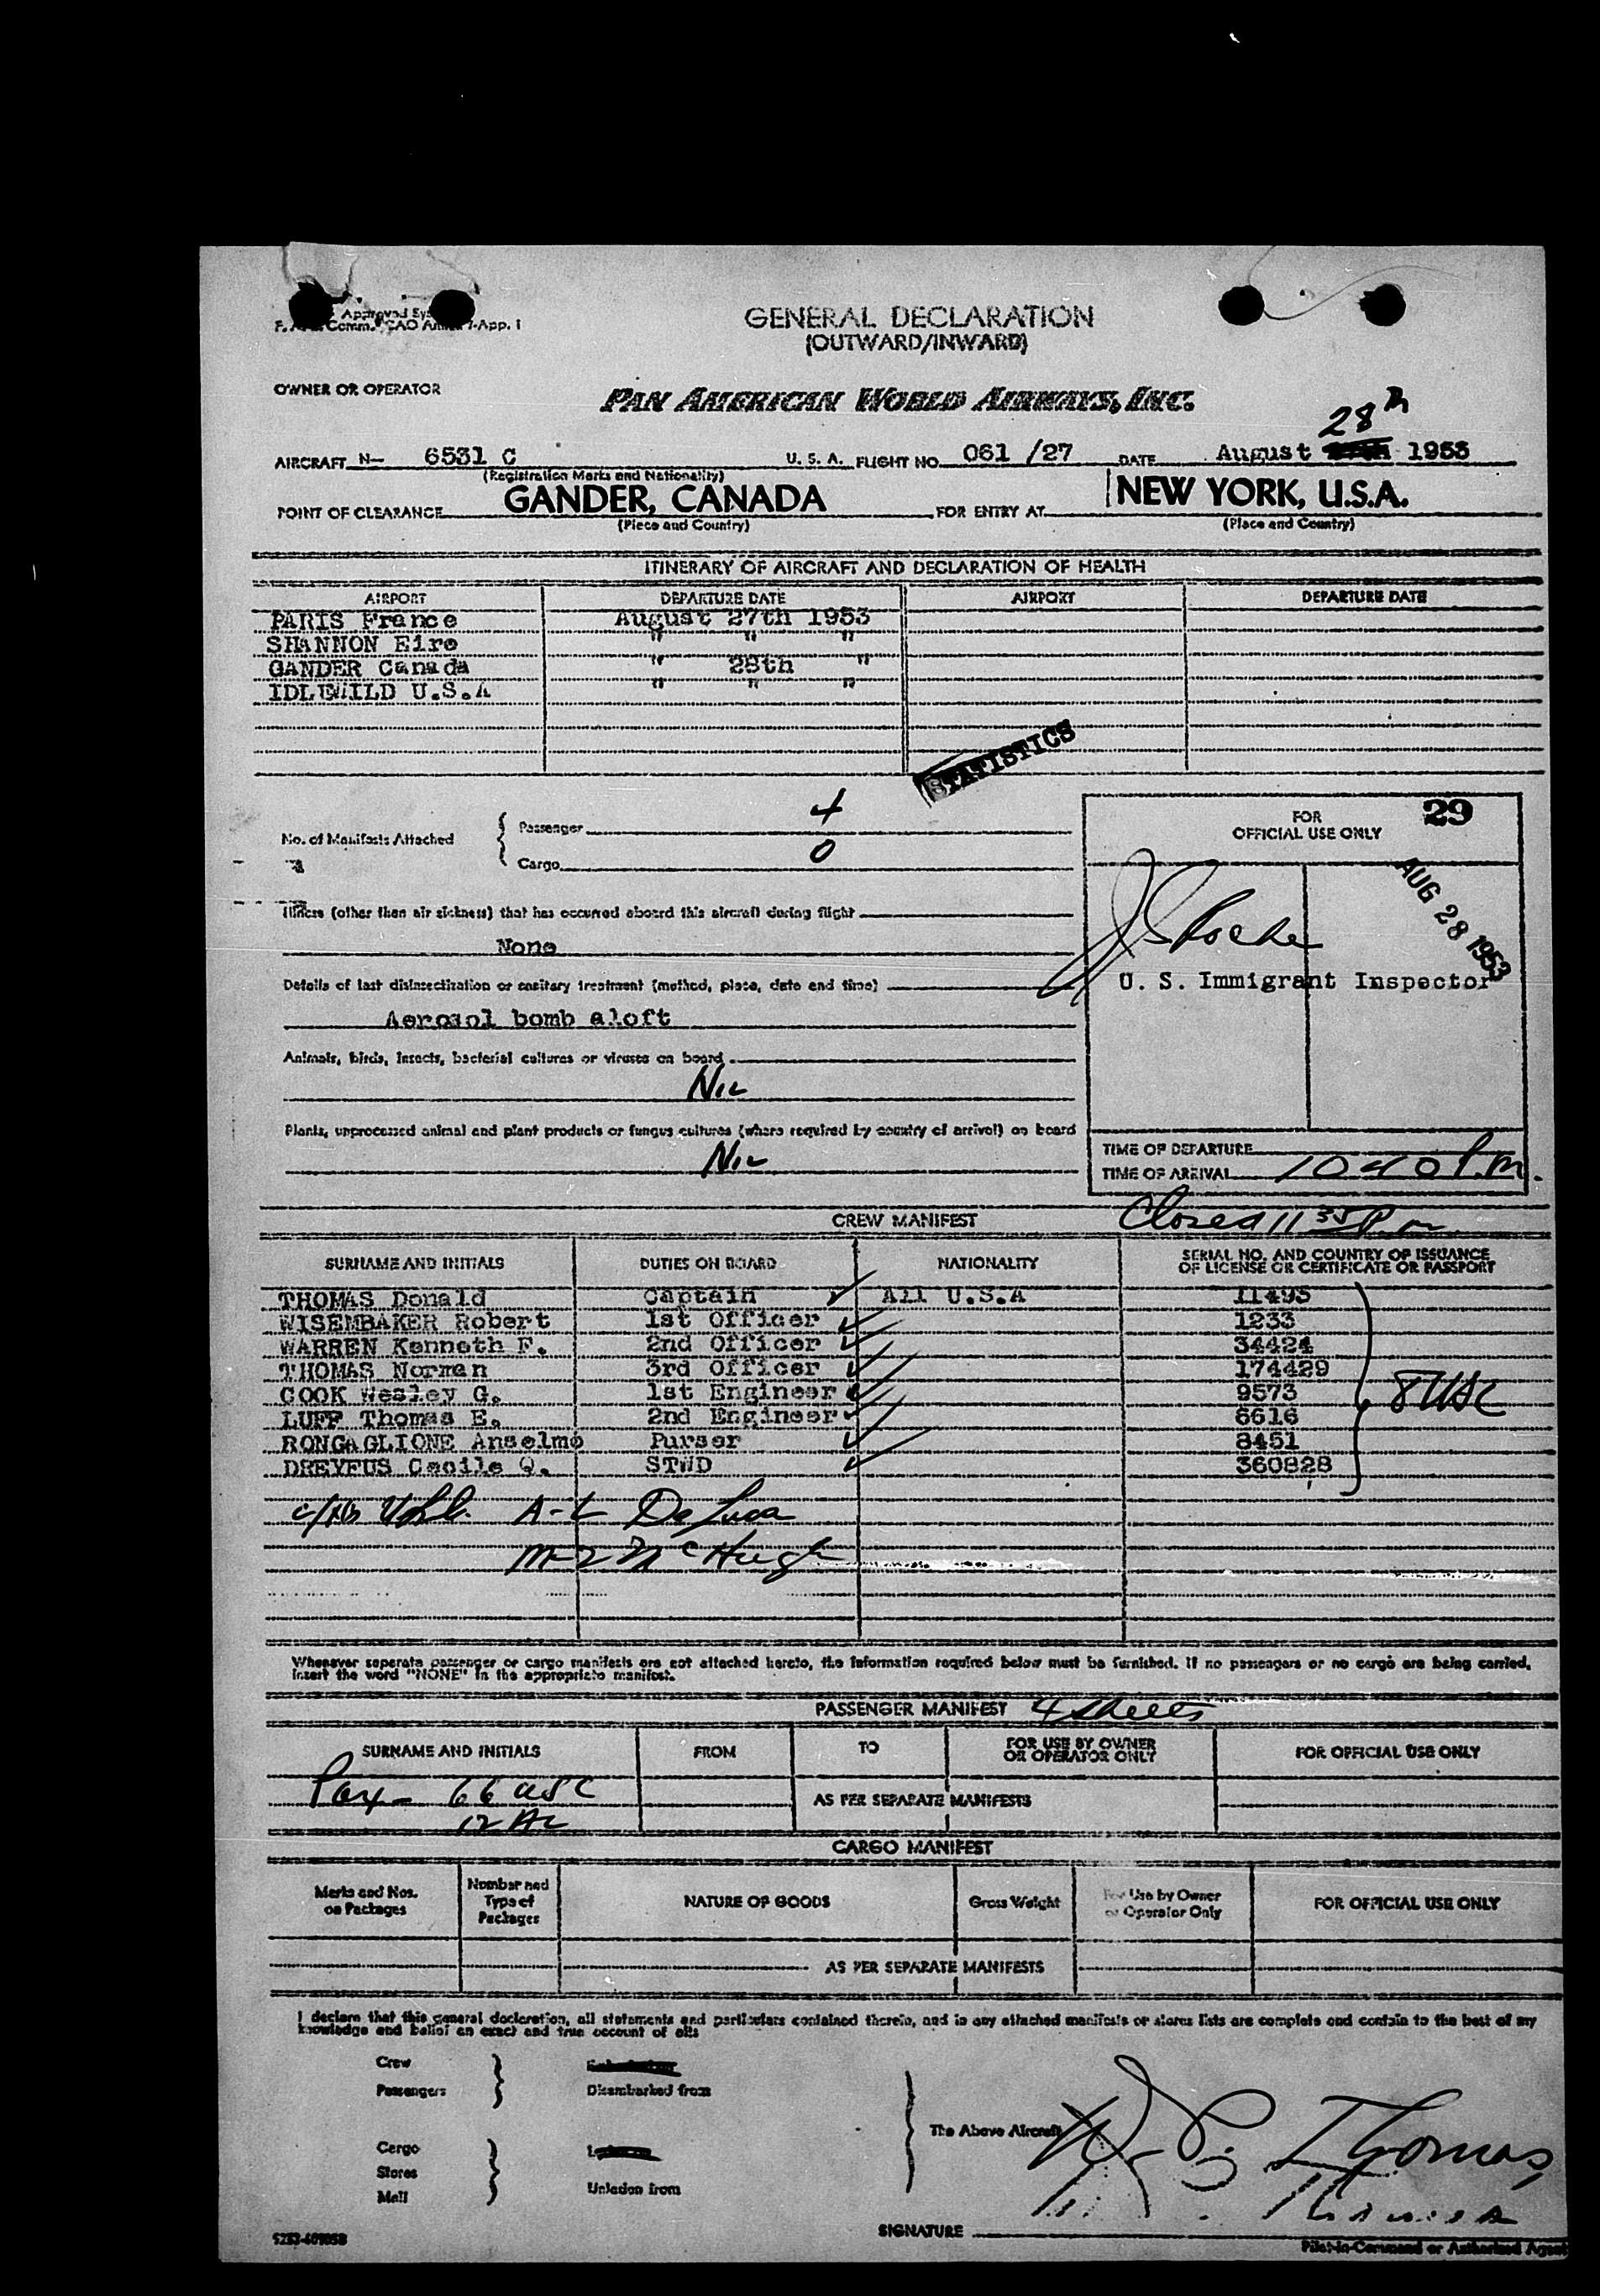 Approved
Comm. App. 1
GENERAL DECLARATION
(OUTWARD/INWARD)
OWNER OR OPERATOR PAN AMERICAN WORLD AIRWAYS, INC.
28th
AIRCRAFT N- 6531 C U. S. A. FLIGHT NO. 061 /27 DATE August 1953
(Registration Marks and Nationality)
POINT OF CLEARANCE GANDER, CANADA FOR ENTRY AT NEW YORK, U.S.A.
(Place and Country) (Place and Country)
ITINERARY OF AIRCRAFT AND DECLARATION OF HEALTH
AIRPORT DEPARTURE DATE AIRPORT DEPARTURE DATE
PARIS France August 27th 1953
SHANNON Eire " " "
GANDER Canada " 28th "
IDLEWILD U.S.A " " "
STATISTICS
No. of Manifests Attached { Passenger 4
Cargo 0
FOR OFFICIAL USE ONLY 29
AUG 28 1953
U. S. Immigrant Inspector
Illness (other than air sickness) that has occurred aboard this aircraft during flight
None
Details of last disinsectization or sanitary treatment (method, place, date and time)
Aerosol bomb aloft
Animals, birds, insects, bacterial cultures or viruses on board
Nil
Plants, unprocessed animal and plant products or fungus cultures (where required by country of arrival) on board
Nil
TIME OF DEPARTURE
TIME OF ARRIVAL 1040 P.m.
Closed 11 35 P.m
CREW MANIFEST
SURNAME AND INITIALS DUTIES ON BOARD NATIONALITY SERIAL NO. AND COUNTRY OF ISSUANCE OF LICENSE OR CERTIFICATE OR PASSPORT
THOMAS Donald Captain All U.S.A 11495
WISEMBAKER Robert 1st Officer 1233
WARREN Kenneth F. 2nd Officer 34424
THOMAS Norman 3rd Officer 174429
COOK Wesley G. 1st Engineer 9573 8 USC
LUFF Thomas E. 2nd Engineer 6616
RONGAGLIONE Anselmo Purser 8451
DREYFUS Cecile Q. STWD 360828
A-L De Luca
M-2 McHugh
Whenever separate passenger or cargo manifests are not attached hereto, the information required below must be furnished. If no passengers or no cargo are being carried,
insert the word "NONE" in the appropriate manifest.
PASSENGER MANIFEST 4 sheets
SURNAME AND INITIALS FROM TO FOR USE BY OWNER OR OPERATOR ONLY FOR OFFICIAL USE ONLY
Pax - 66 USC
12 AL
AS PER SEPARATE MANIFESTS
CARGO MANIFEST
Marks and Nos. on Packages Number and Type of Packages NATURE OF GOODS Gross Weight For Use by Owner or Operator Only FOR OFFICIAL USE ONLY
AS PER SEPARATE MANIFESTS
I declare that this general declaration, all statements and particulars contained therein, and in any attached manifests or stores lists are complete and contain to the best of my
knowledge and belief an exact and true account of all:
Crew
Passengers Disembarked from
The Above Aircraft
Cargo
Stores
Mail Unladen from
Thomas
SIGNATURE
Pilot-in-Command or Authorized Agent